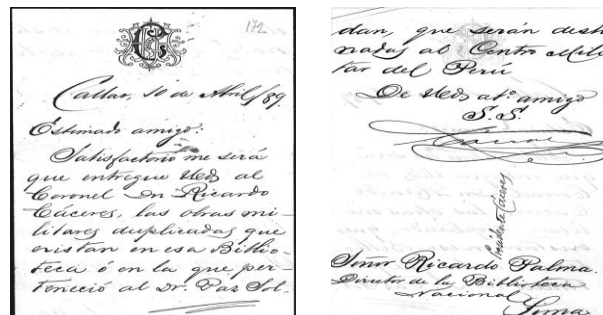 172
Callao, 10 de Abril/89.
Estimado amigo:
Satisfactorio me será
que entregue Ued. al
Coronel Dn Ricardo
Cáceres, las obras mi-
litares duplicadas que
existan en esa Biblio-
teca ó en la que per-
teneció al Dr. Paz Sol-
dan, que serán desti
nadas al Centro Mili
tar del Perú
De Ued. at.º amigo
S. S.
Cáceres
Presidente Cáceres
Señor Ricardo Palma.
Director de la Biblioteca
Nacional
Lima